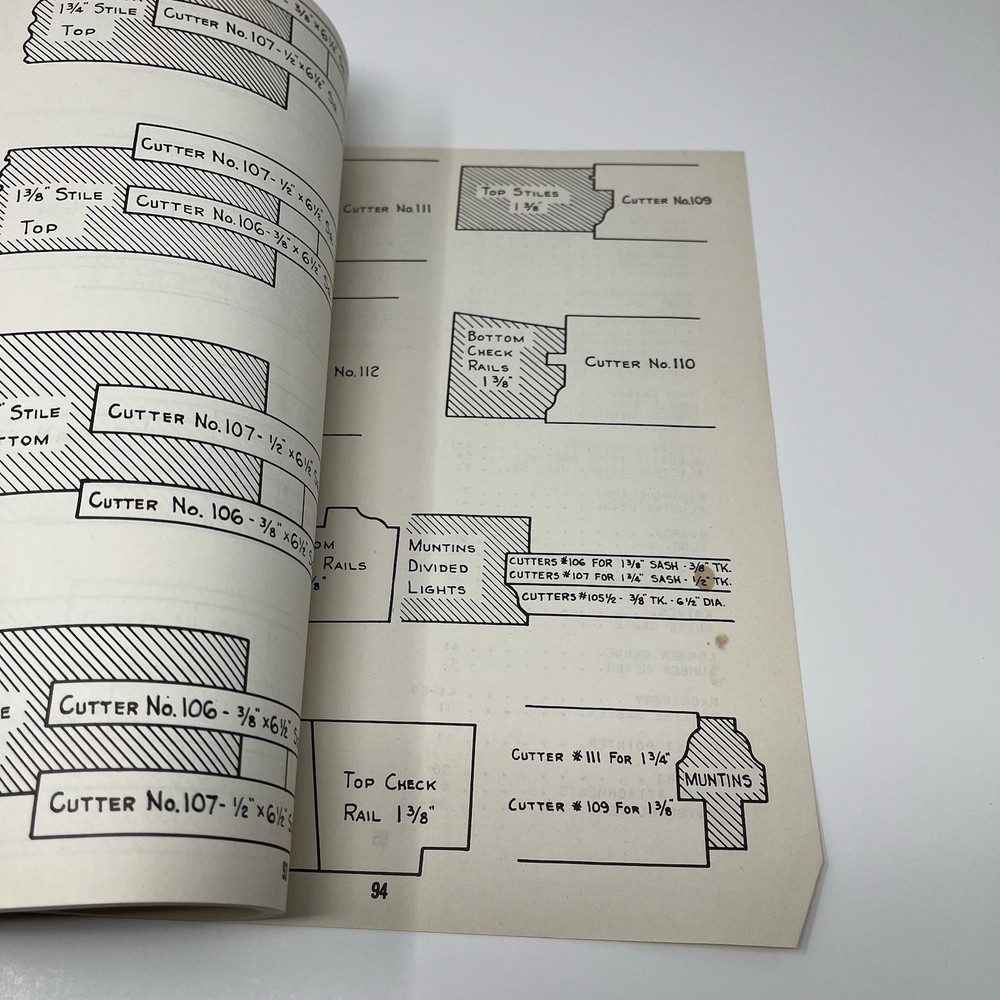 1¾" STILE
TOP
3/8" x 6½"
CUTTER NO.107-½" x 6½" SQ
CUTTER NO.107-½" x 6½" SQ
1⅜" STILE
TOP
CUTTER NO.106-⅜" x 6½" SQ
" STILE
TTOM
CUTTER NO.107-½" x 6½" S
CUTTER NO. 106-⅜" x 6½" S
E
CUTTER NO.106-⅜" x 6½" S
CUTTER NO.107-½" x 6½" S
CUTTER NO.111
TOP STILES
1⅜"
CUTTER NO.109
NO.112
BOTTOM
CHECK
RAILS
1⅜"
CUTTER NO.110
OM
RAILS
MUNTINS
DIVIDED
LIGHTS
CUTTERS #106 FOR 1⅜" SASH - ⅜" TK.
CUTTERS #107 FOR 1¾" SASH - ½" TK.
CUTTERS #105½ - ⅜" TK. - 6½" DIA.
TOP CHECK
RAIL 1⅜"
CUTTER #111 FOR 1¾"
CUTTER #109 FOR 1⅜"
MUNTINS
94